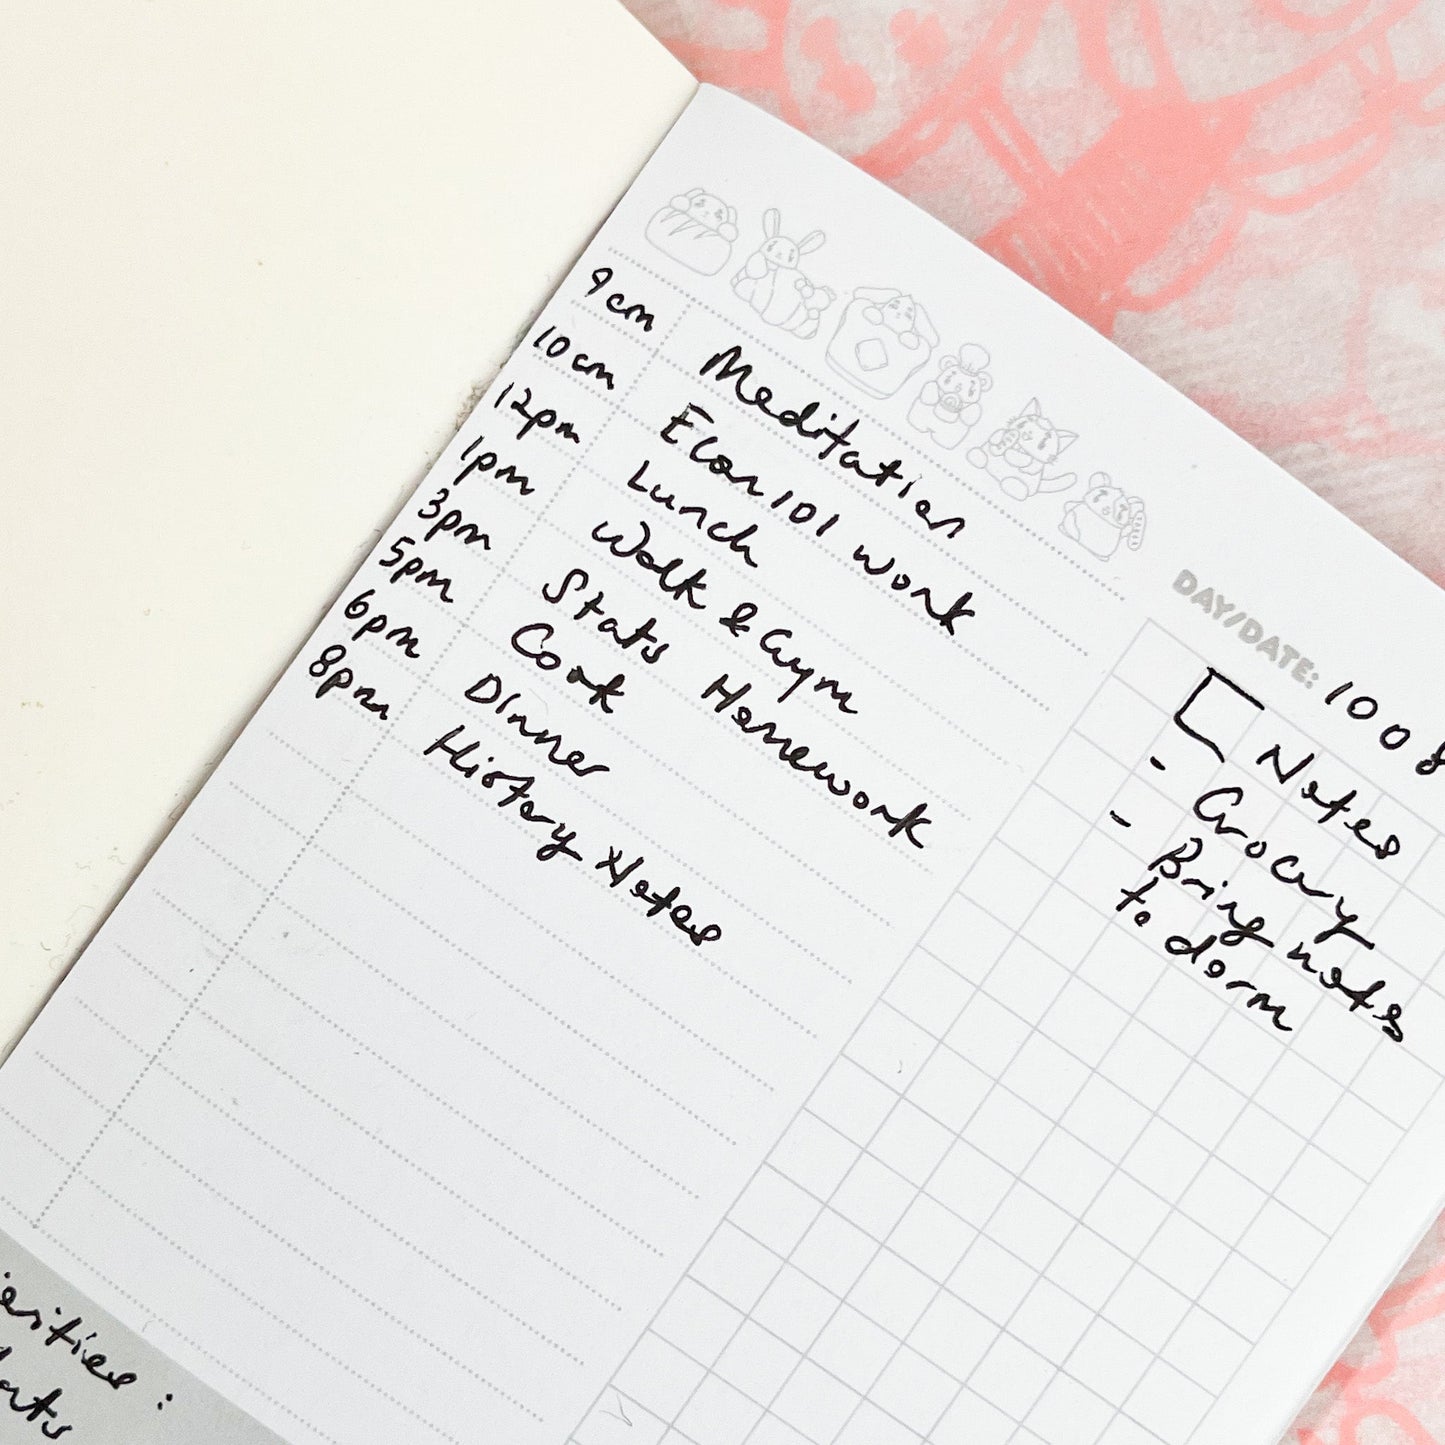 9am Meditation
10am Econ 101 work
12pm Lunch
1pm Walk & Gym
3pm Stats Homework
5pm Cook
6pm Dinner
8pm History Notes
DAY/DATE:
Notes
- Grocery
- Bring notes
to dorm